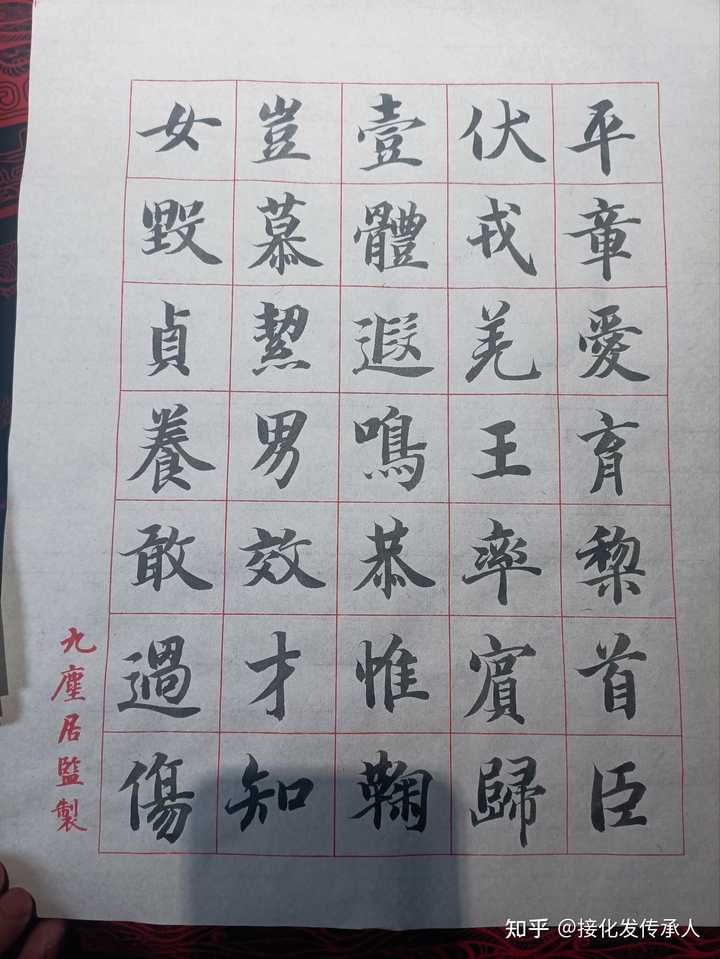 平章愛育黎首臣
伏戎羌王率賓歸
壹體遐鳴恭惟鞠
豈慕絜男效才知
女毀貞養敢過傷
九塵居監製
知乎 @接化发传承人